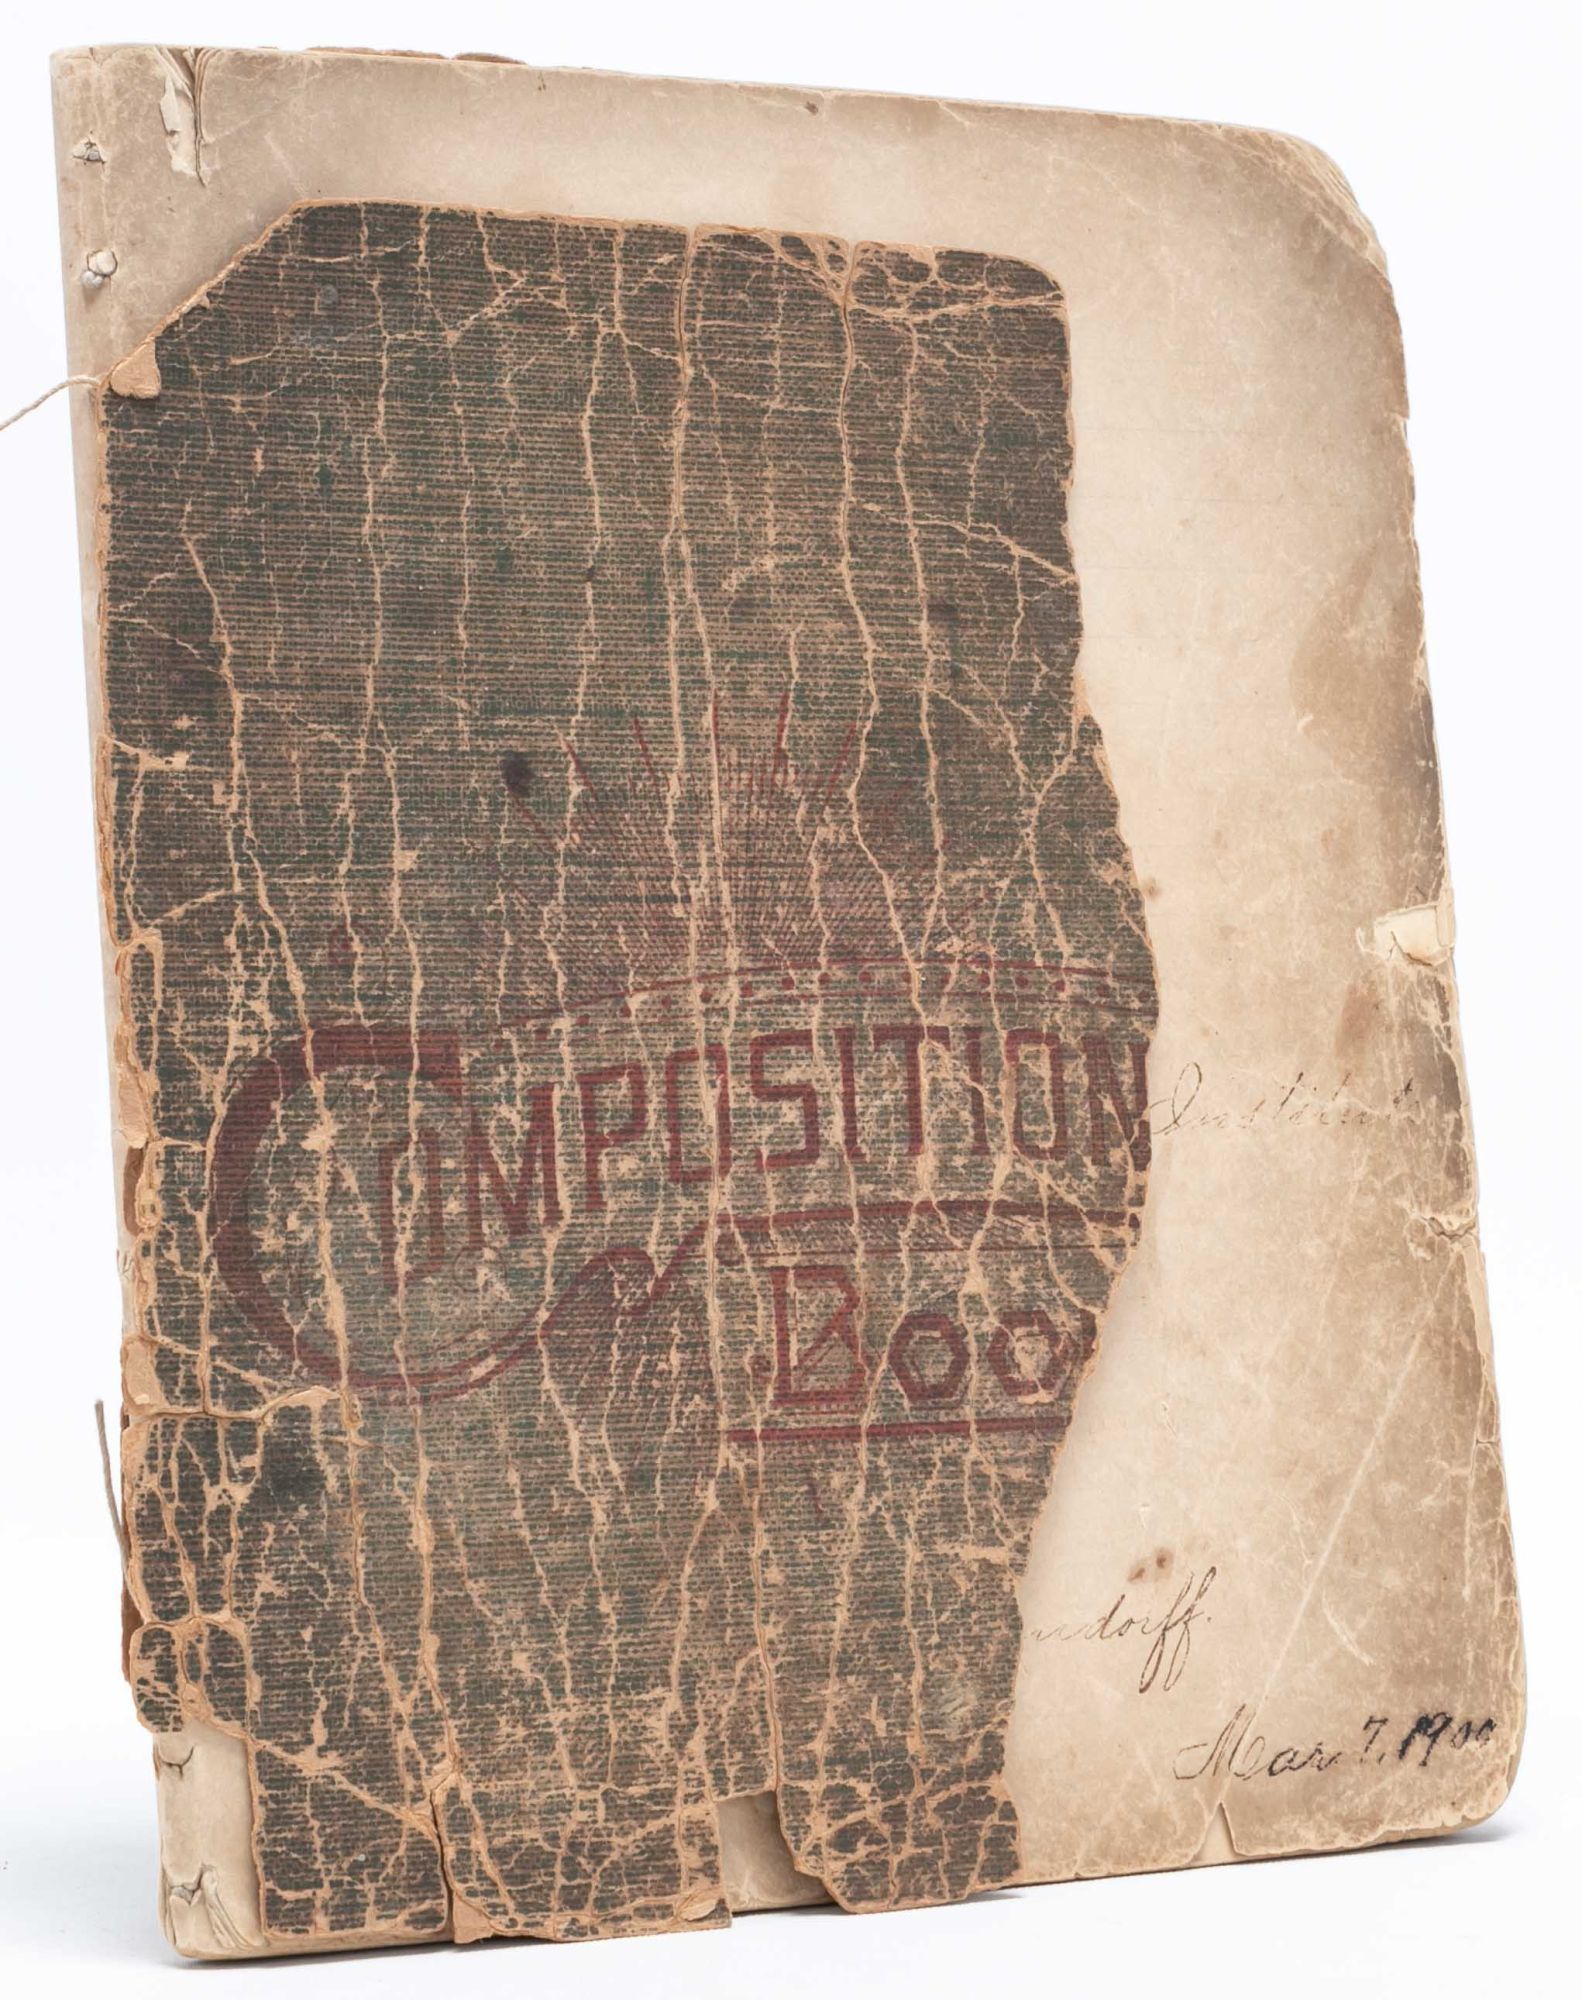 COMPOSITION
Institute
Boo
ndorff.
Mar 7, 1900